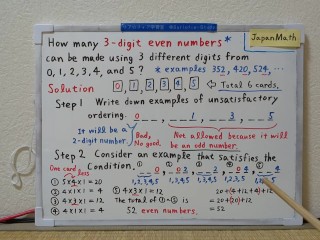 JapanMath
How many 3-digit even numbers*
can be made using 3 different digits from
0, 1, 2, 3, 4, and 5? * examples 352, 420, 524, ...
Solution 0 1 2 3 4 5 ← Total 6 cards.
Step 1 Write down examples of unsatisfactory
ordering. 0 _ _ , _ _ 1 , _ _ 3 , _ _ 5
It will be a
2-digit number.
Bad,
No good.
Not allowed because it will
be an odd number.
Step 2 Consider an example that satisfies the
Condition.
One card
① 5×4×1=20
② 4×1×1=4
③ 4×1×1=4
④ 4×1×1=4
⑤ 4×3×1=12
The total of ①~⑤ is
52 even numbers.
=52